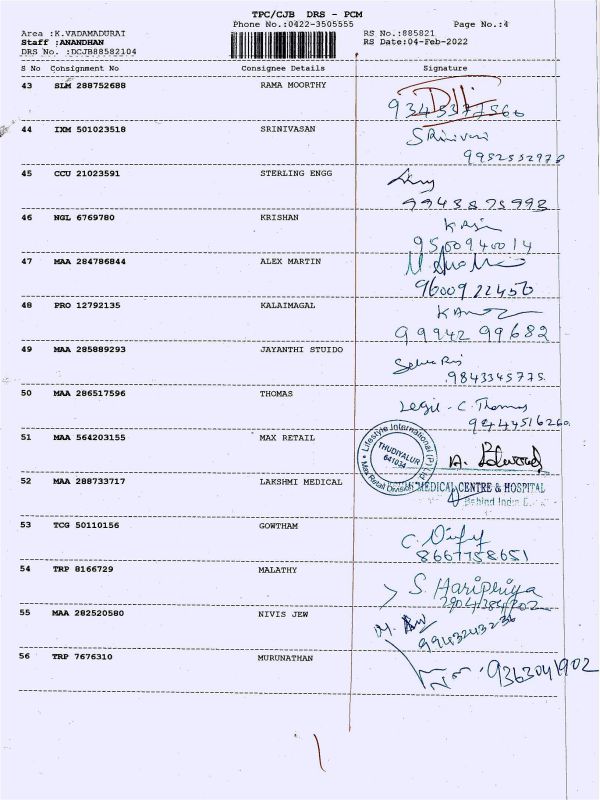 TPC/CJB DRS - PCM
Phone No.:0422-3505555 Page No.:4
Area :K.VADAMADURAI RS No.:885821
Staff :ANANDHAN RS Date:04-Feb-2022
DRS No. :DCJB88582104
S No Consignment No Consignee Details Signature
43 SLM 288752688 RAMA MOORTHY
44 IXM 501023518 SRINIVASAN
Srinivasi
9952552970
45 CCU 21023591 STERLING ENGG
9943875993
46 NGL 6769780 KRISHAN
9500940014
47 MAA 284786844 ALEX MARTIN
9600922450
48 PRO 12792135 KALAIMAGAL
99942 99682
49 MAA 285889293 JAYANTHI STUIDO
9843345775
50 MAA 286517596 THOMAS
C. Thomas
9244516260
51 MAA 564203155 MAX RETAIL
Lifestyle International (P) Ltd
Max Retail Division
THUDIYALUR
641034
52 MAA 288733717 LAKSHMI MEDICAL
MEDICAL CENTRE & HOSPITAL
Behind
53 TCG 50110156 GOWTHAM
8667758651
54 TRP 8166729 MALATHY
S. Haripriya
55 MAA 282520580 NIVIS JEW
9943243236
56 TRP 7676310 MURUNATHAN
9363041902